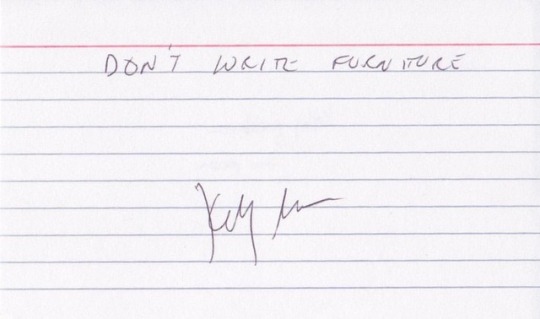 DON'T WRITE FURNITURE